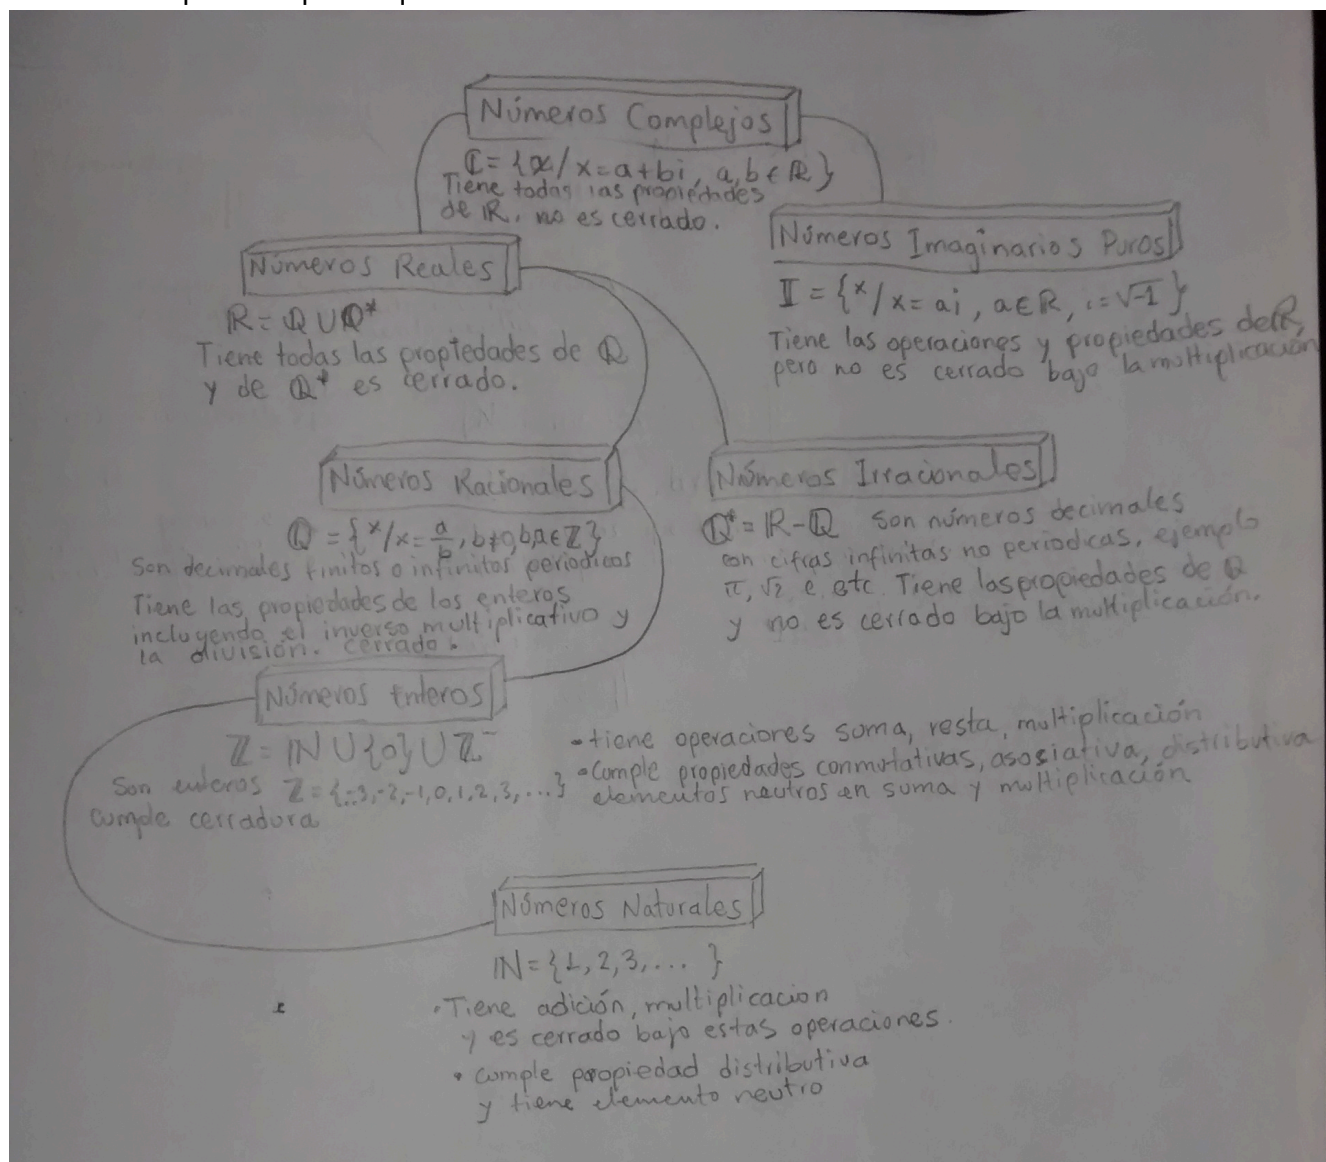 Números Complejos
ℂ = {x/x=a+bi, a,b ∈ ℝ}
Tiene todas las propiedades
de ℝ, no es cerrado.
Números Reales
ℝ = ℚ ∪ ℚ*
Tiene todas las propiedades de ℚ
y de ℚ* es cerrado.
Números Imaginarios Puros
𝕀 = {x/x=ai, a∈ℝ, i=√-1}
Tiene las operaciones y propiedades de ℝ,
pero no es cerrado bajo la multiplicación
Números Racionales
ℚ = {x/x=a/b, b≠0, b,a∈ℤ}
Son decimales finitos o infinitos periodicos
Tiene las propiedades de los enteros
incluyendo el inverso multiplicativo y
la división. cerrado.
Números Irracionales
ℚ* = ℝ-ℚ Son números decimales
con cifras infinitas no periodicas, ejemplo
π, √2 e etc. Tiene las propiedades de ℚ
y no es cerrado bajo la multiplicación.
Números Enteros
ℤ = ℕ ∪ {0} ∪ ℤ⁻
Son enteros ℤ = {..-3,-2,-1,0,1,2,3,...}
cumple cerradura
• tiene operaciones suma, resta, multiplicación
• Cumple propiedades conmutativas, asosiativa, distributiva
elementos neutros en suma y multiplicación
Números Naturales
ℕ = {1,2,3,... }
• Tiene adición, multiplicacion
y es cerrado bajo estas operaciones.
• cumple propiedad distributiva
y tiene elemento neutro